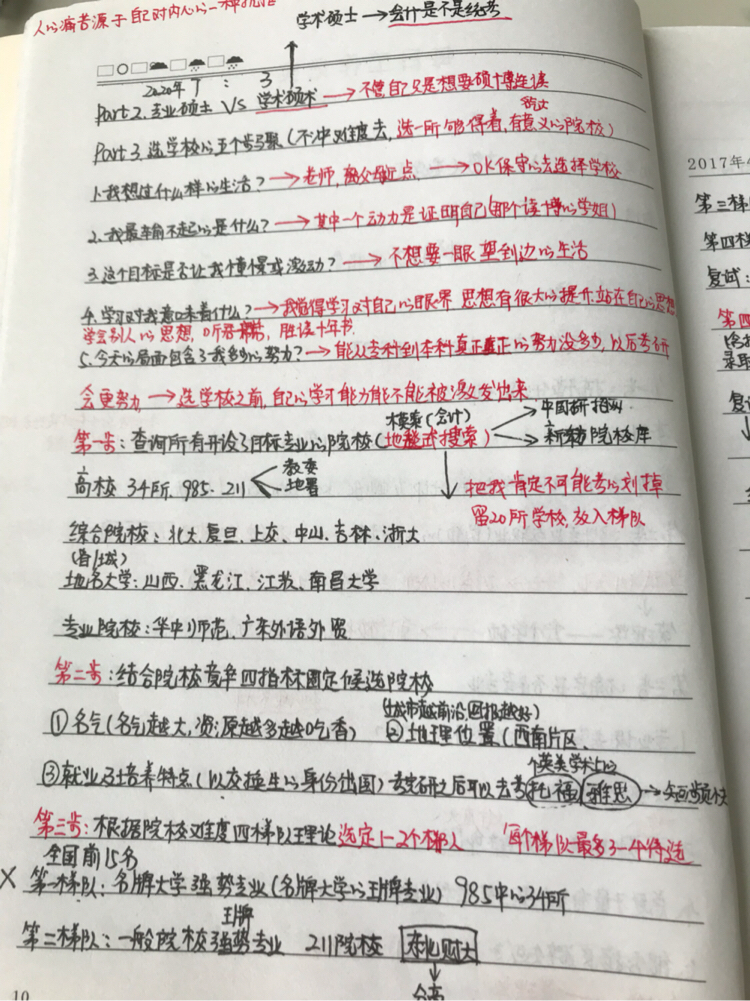 人的痛苦源于自己对内心的一种
学术硕士→会计是不是统考
2020年 7 : 3
Part 2. 专业硕士 VS 学术硕术→不管自己只是想要硕博连读
Part 3. 选学校的五个步骤(不冲难度去,选一所够得着,有意义的院校)
1.我想过什么样的生活?→老师,离父母近点→OK保守的去选择学校
2.我最车前不起的是什么?→其中一个动力是证明自己(那个读博的学姐)
3.这个目标是否让我憧憬或激动?→不想要一眼望到边的生活
4.学习对我意味着什么?→我觉得学习对自己的眼界 思想有很大的提升.站在自己的思想
学会别人的思想,听君 ,胜读十年书.
5.今天的局面包含了我多少的努力?→能从专科到本科真正的努力没多少,以后考研
会更努力→选学校之前,自己的学习能力能不能被激发出来
搜索(会计)
中国研招网
第一步:查询所有开设了目标专业的院校(地毯式搜索)
院校库
高校 34所. 985. 211
教委
地署
把我肯定不可能考的划掉
留20所学校,放入梯队
综合院校:北大.复旦.上交.中山.吉林.浙大
(省/城)
地名大学:山西.黑龙江.江苏.南昌大学
专业院校:华中师范.广东外语外贸
第二步:结合院校竞争四指标圈定候选院校
(城市越前沿,回报越好)
①名气(名气越大,资源越多越吃香) ②地理位置(西南片区.
个英美学术的
③就业及培养特点(以交换生的身份出国)考完研之后可以去考托福 雅思→
第三步:根据院校难度四梯队理论选定1-2个梯队 每个梯队最多3-4个待选
全国前15名
X 第一梯队:名牌大学强势专业(名牌大学的王牌专业) 985中的34所
王牌
第二梯队:一般院校强势专业 211院校 东北财大
10
2017年
第三梯
第四梯
复试:
第四
录取
复